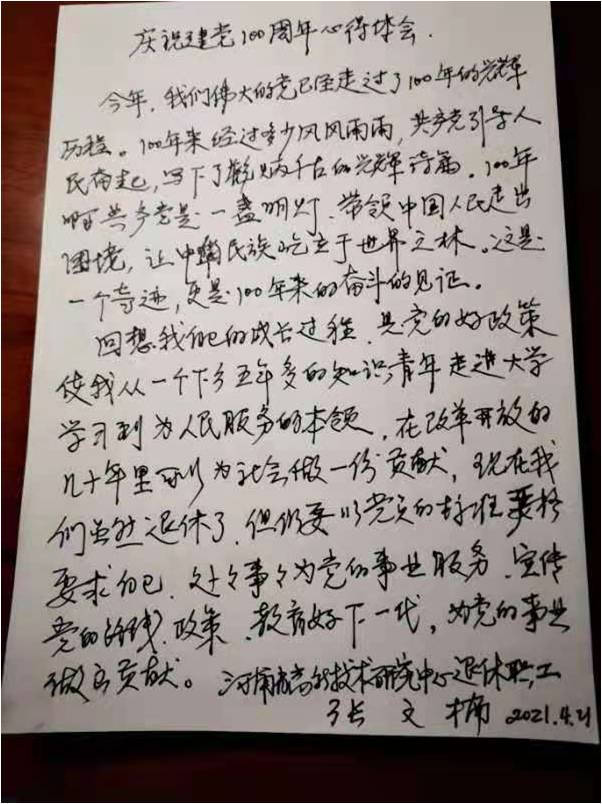 庆祝建党100周年心得体会.
今年,我们伟大的党已经走过了100年的光辉
历程。100年来经过多少风风雨雨,共产党引导人
民奋起,写下了千古的光辉诗篇。100年
共产党是一盏明灯,带领中国人民走出
困境,让中华民族屹立于世界之林。这是
一个奇迹,更是100年来的奋斗的见证。
回想我自己的成长过程,是党的好政策
使我从一个下乡五年多的知识青年走进大学
学习到为人民服务的本领,在改革开放的
几十年里可以为社会做一份贡献,现在我
们虽然退休了,但仍要以党员的标准严格
要求自己,处处事事为党的事业服务,宣传
党的路线、政策,教育好下一代,为党的事业
做出贡献。河南省高新技术研究中心退休职工
张文楠 2021.4.21